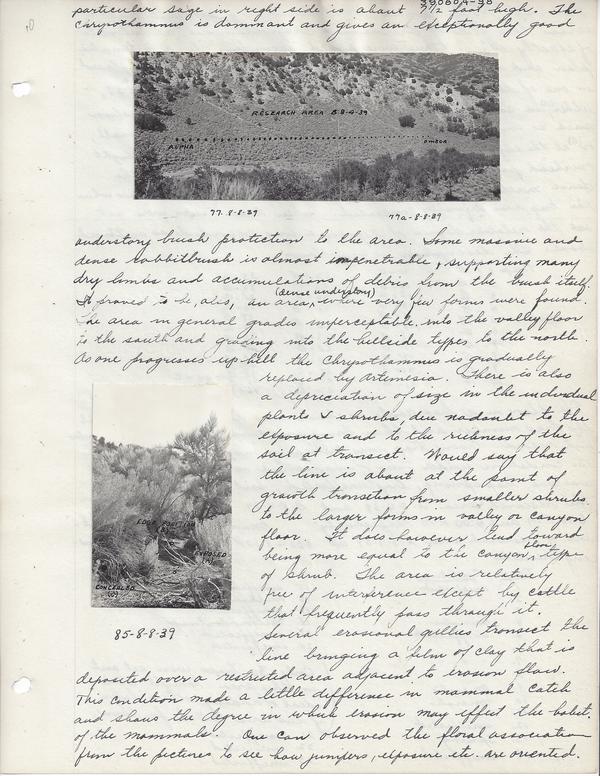 39080A-38
particular sage in right side is about 7 1/2 foot high. The
Chrysothamnus is dominant and gives an exceptionally good
RESEARCH AREA 8-8-4-39
ALPHA
OMEGA
77-8-8-39
77a-8-8-39
understory brush protection to the area. Some massive and
dense rabbitbrush is almost impenetrable, supporting many
dry limbs and accumulations of debris from the brush itself.
It proved to be, also, an area, (dense understory) where very few forms were found.
The area in general grades imperceptable into the valley floor
is the south and grading into the hillside types to the north.
As one progresses up hill the Chrysothamnus is gradually
replaced by Artimesia. There is also
a depreciation of size in the individual
plants & shrubs, due no doubt to the
exposure and to the richness of the
soil at transect. Would say that
the line is about at the point of
growth transition from smaller shrubs
to the larger forms in valley or canyon
floor. It does however, tend toward
being more equal to the canyon floor type
of shrub. The area is relatively
free of interference except by cattle
that frequently pass through it.
Several erosional gullies transect the
line bringing a film of clay that is
EDGE POSITION
EXPOSED
CONCEALED
85-8-8-39
deposited over a restricted area adjacent to erosion flow.
This condition made a little difference in mammal catch
and shows the degree in which erosion may effect the habit.
of the mammals. One can observed the floral association
from the pictures to see how junipers, exposure etc. are oriented.